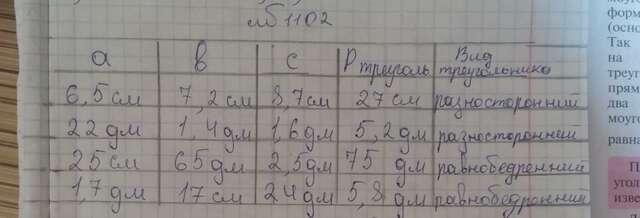 № 1102
a в c P треуголь. Вид треугольника
6,5 см 7,2 см 8,7 см 27 см разносторонний
22 дм 1,4 дм 1,6 дм 5,2 дм разносторонний
25 см 65 дм 2,5 дм 75 дм равнобедренний
1,7 дм 17 см 24 дм 5,8 дм равнобедронний
форм
(осно
Так
на
треуг
прям
два
моуго
равна
П
угол
изво